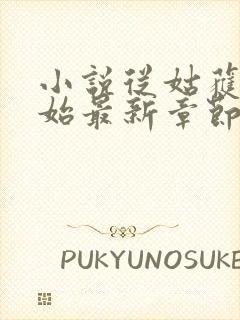 小說從姑獲
始最新章節
PUKYUNOSUKE